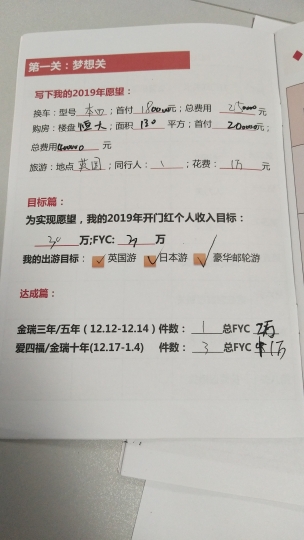 第一关：梦想关
写下我的2019年愿望：
换车：型号 本田；首付 180000元；总费用 250000元
购房：楼盘 恒大；面积 130 平方；首付 200000元；
总费用 元
旅游：地点 英国；同行人： 1；花费： 1万 元
目标篇：
为实现愿望，我的2019年开门红个人收入目标：
30 万;FYC: 万
我的出游目标： 英国游 日本游 豪华邮轮游
达成篇：
金瑞三年/五年（12.12-12.14）件数： 1 总FYC 2万
爱四福/金瑞十年(12.17-1.4) 件数： 3 总FYC 1万